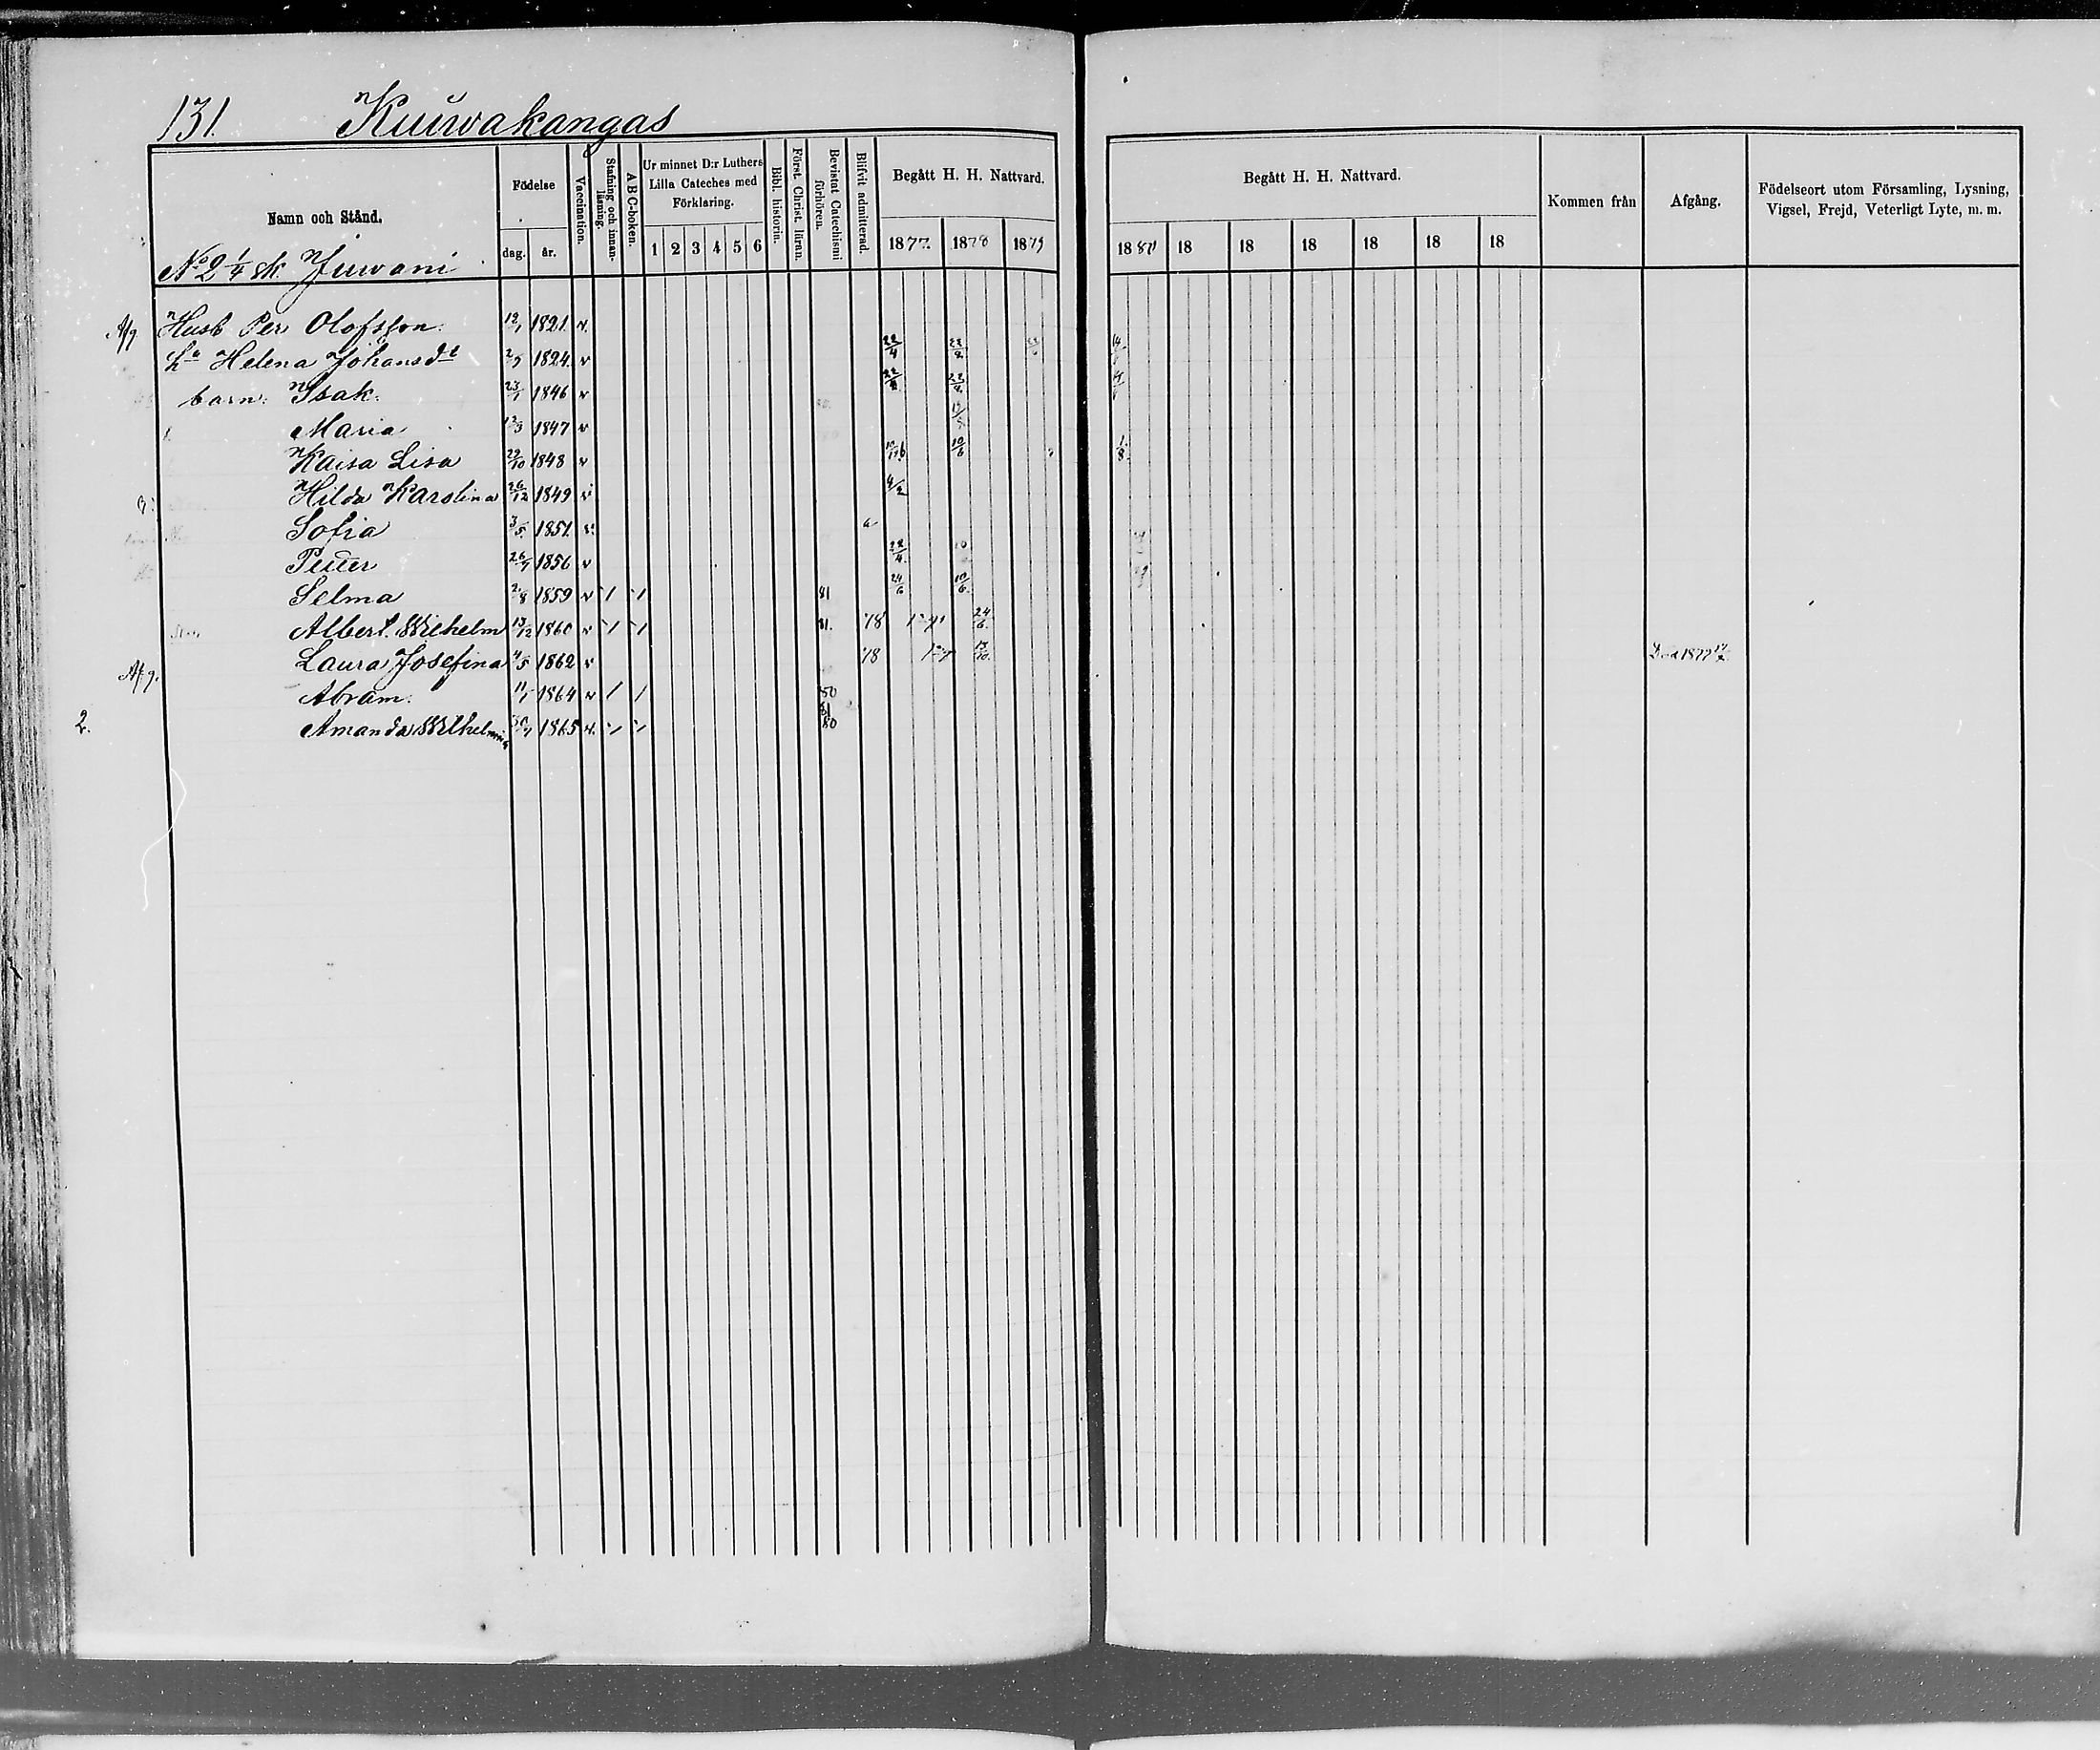 131. Kuiwakangas
Namn och Stånd.
Födelse
dag. år.
Vaccination.
Stafning och innanläsning.
A B C-boken.
Ur minnet D:r Luthers Lilla Cateches med Förklaring.
1 2 3 4 5 6
Bibl. historia.
Först. Christ. läran.
Bevistat Catechismi förhören.
Blifvit admitterad.
Begått H. H. Nattvard.
1877 1878 1879
Begått H. H. Nattvard.
1880 18 18 18 18 18 18
Kommen från
Afgång.
Födelseort utom Församling, Lysning, Vigsel, Frejd, Veterligt Lyte, m. m.
No 2 1/4 sk. Juwani
Afg. Husb Per Olofsson 12/1 1821 v.
hu Helena Johansdr 2/5 1824 v 22/4 22/2
barn: Isak 23/1 1846 v 22/4 22/2
Maria 12/3 1847 v
Kaisa Lisa 22/10 1848 v 10/6 1/8
Hilda Karolina 26/12 1849 v 4/2
Sofia 3/5 1851 v. a
Petter 26/7 1856 v 22/4
Selma 2/8 1859 v 81 24/6 10/6
Albert Wilhelm 13/12 1860 v 81. 78 24/6
Laura Josefina 4/5 1862 v 78 13/10 Död 1877
Afg. Abram 11/1 1864 v 80
2. Amanda Wilhelmina 30/7 1865 v. 81 80